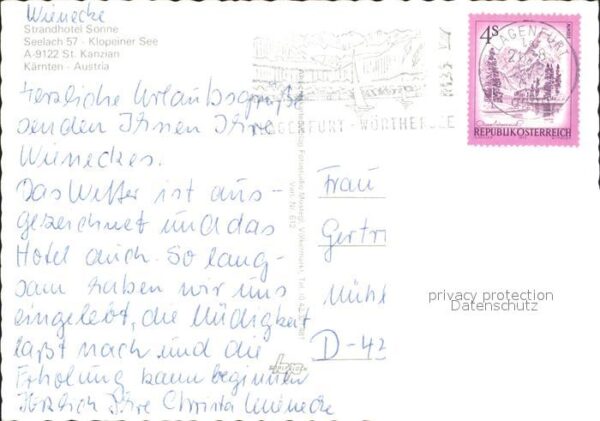 Wienecke
Strandhotel Sonne
Seelach 57 - Klopeiner See
A-9122 St. Kanzian
Kärnten - Austria
Herzliche Urlaubsgrüße
senden Ihnen Ihre
Wieneckes.
Das Wetter ist aus-
gezeichnet und das
Hotel auch. So lang-
sam haben wir uns
eingelebt, die Müdigkeit
läßt nach und die
Erholung kann beginnen
Herzlich Ihre Christa Wienecke
KLAGENFURT - WÖRTHERSEE
4S
REPUBLIK ÖSTERREICH
KLAGENFURT
Frau
Gertr
Mühl
D-42
privacy protection
Datenschutz